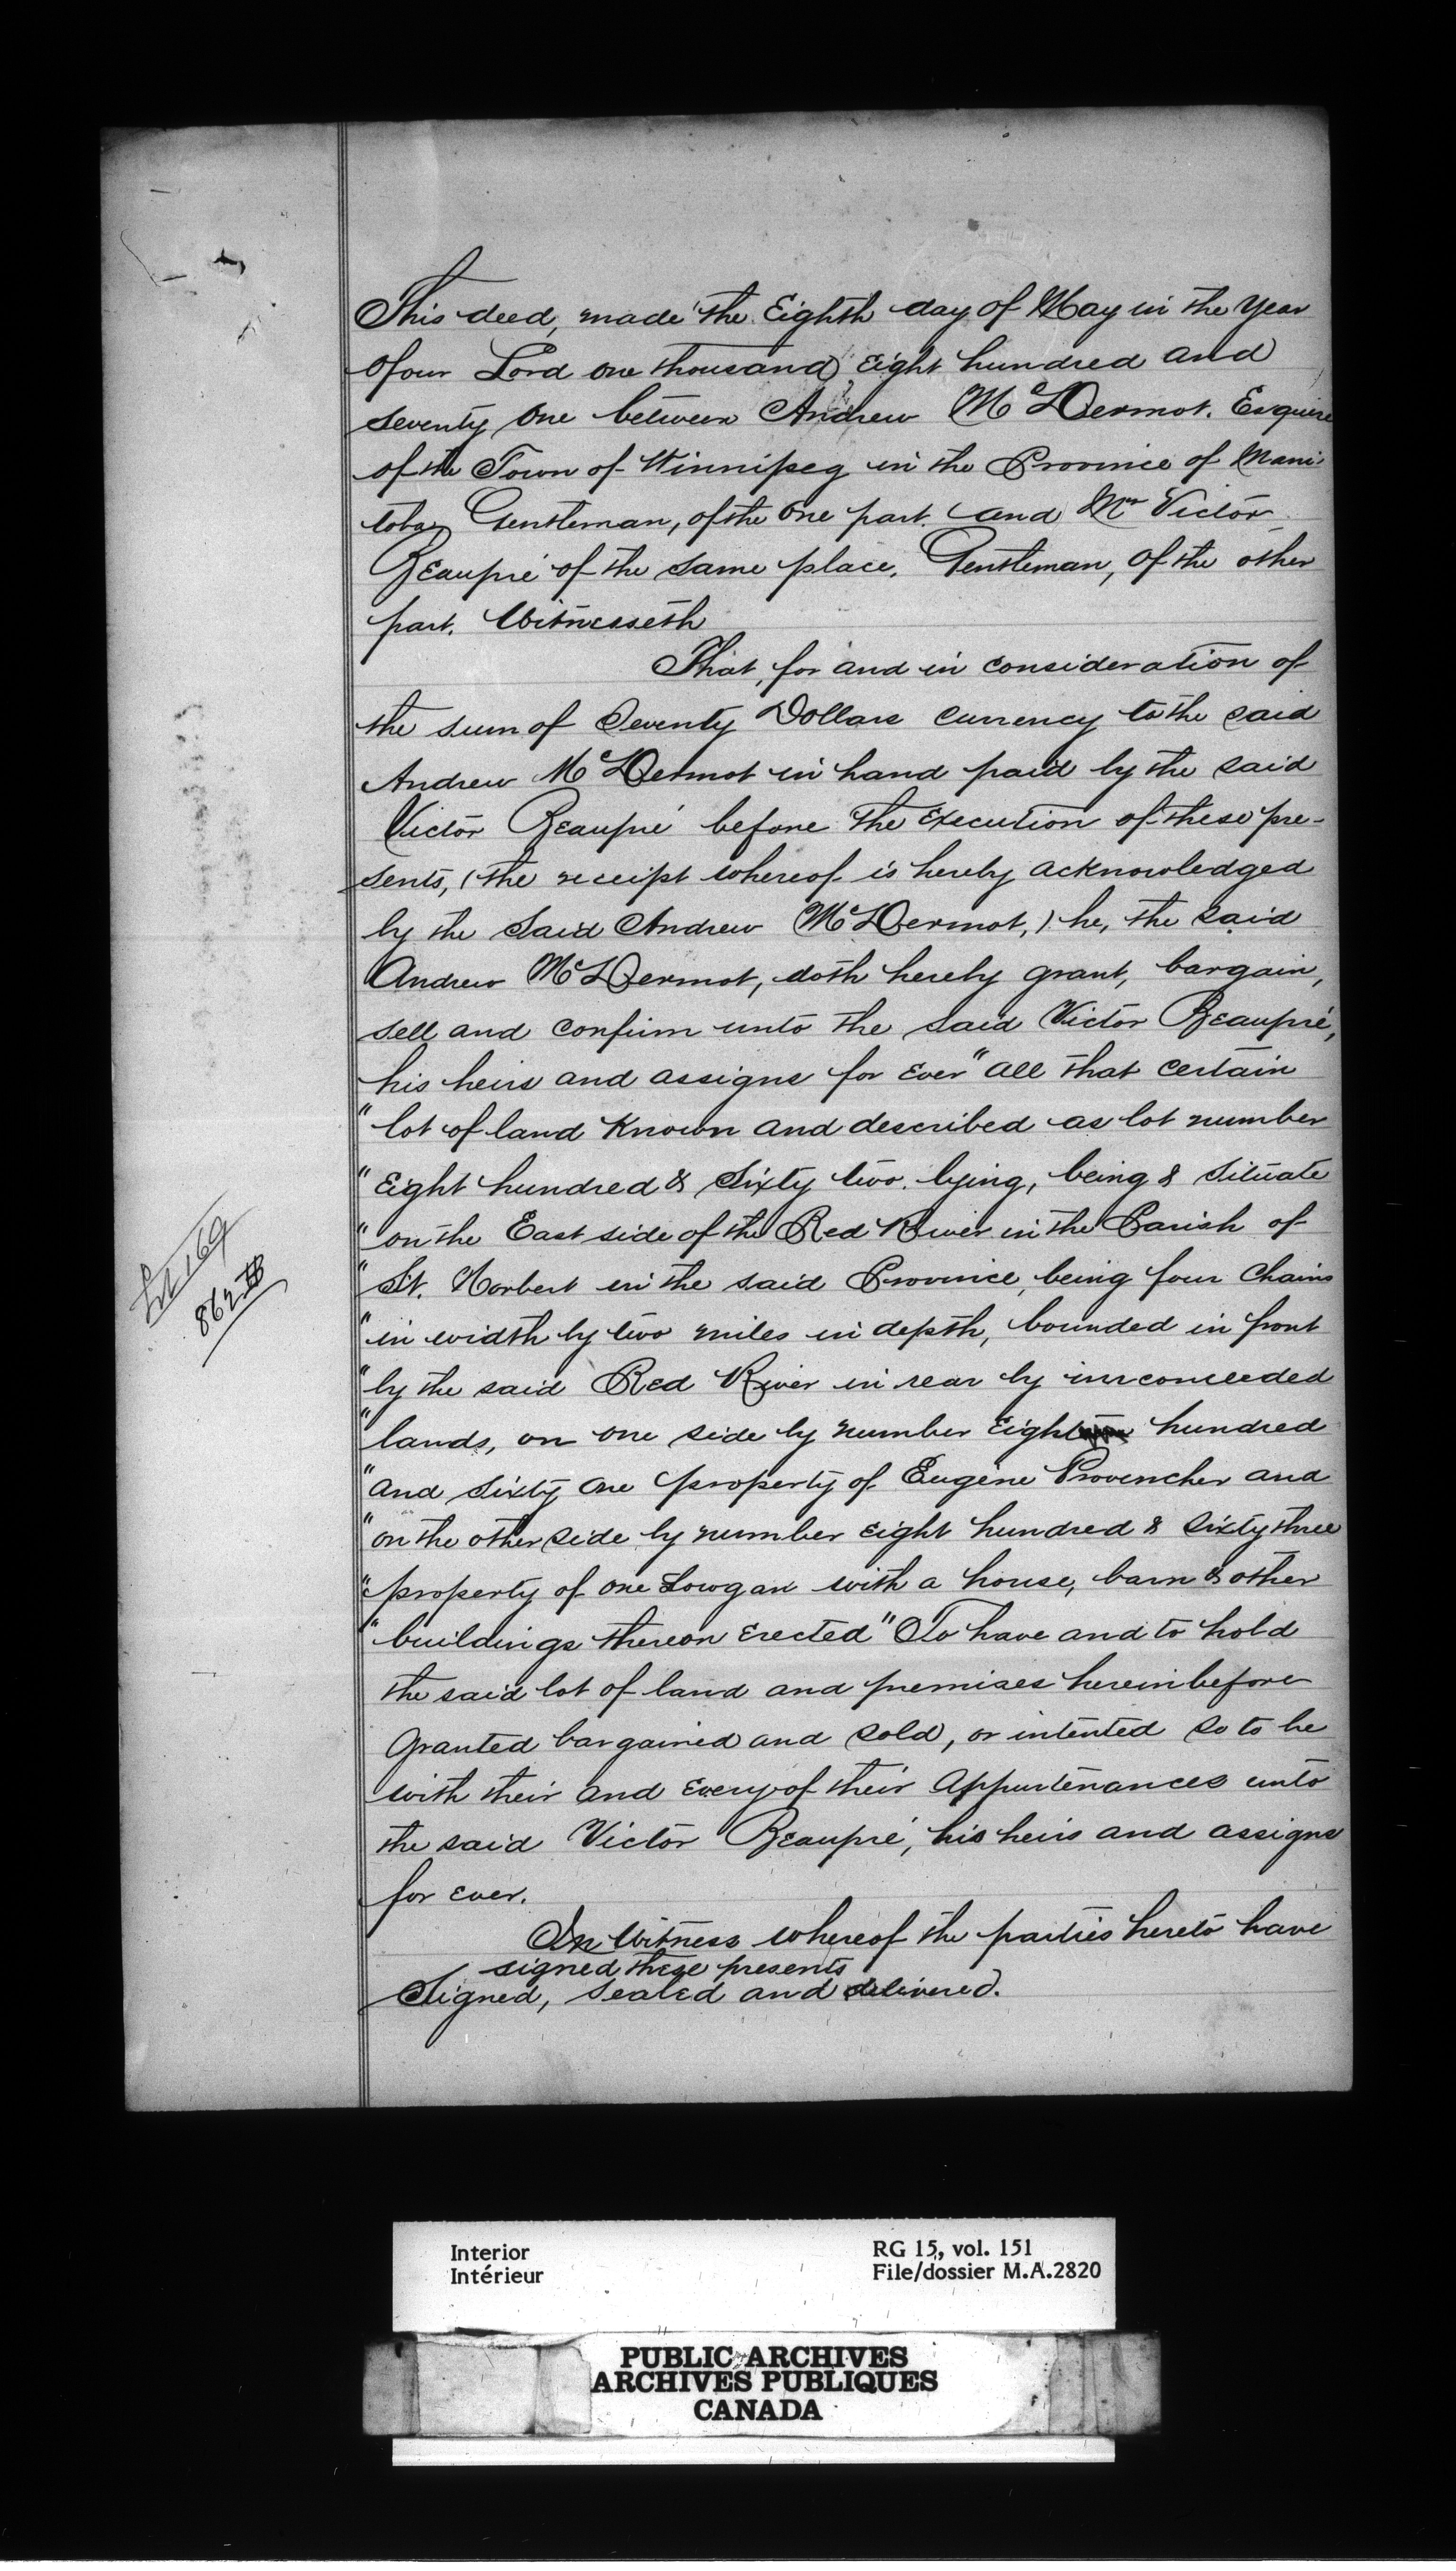 This deed, made the Eighth day of May in the Year
of our Lord one thousand Eight hundred and
seventy one between Andrew McDermot. Esquire
of the Town of Winnipeg in the Province of Mani-
toba, Gentleman, of the one part. and Mr Victor
Beaupré of the same place. Gentleman, of the other
part. Witnesseth
That, for and in consideration of
the sum of Seventy Dollars currency to the said
Andrew McDermot in hand paid by the said
Victor Beaupré before the Execution of these pre-
sents, (the receipt whereof is hereby acknowledged
by the Said Andrew McDermot,) he, the said
Andrew McDermot, doth hereby grant, bargain,
sell and confirm unto the said Victor Beaupré,
his heirs and assigns for Ever "all that certain
"lot of land Known and described as lot number
"Eight hundred & Sixty two. lying, being & Situate
"on the East side of the Red River in the Parish of
"St. Norbert in the said Province, being four Chains
"in width by two miles in depth, bounded in front
"by the said Red River in rear by inconceeded
"lands, on one side by number Eight hundred
"and sixty one property of Eugène Provencher and
"on the other side by number eight hundred & sixty three
"property of one Lowgan with a house, barn & other
"buildings thereon Erected" To have and to hold
the said lot of land and premises hereinbefore
Granted bargained and sold, or intented so to be
with their and Every of their Appurtenances unto
the said Victor Beaupré, his heirs and assigns
for ever.
In Witness whereof the parties hereto have
signed these presents
Signed, Sealed and delivered.
Lot 169
862
Interior
Intérieur
RG 15, vol. 151
File/dossier M.A.2820
PUBLIC ARCHIVES
ARCHIVES PUBLIQUES
CANADA